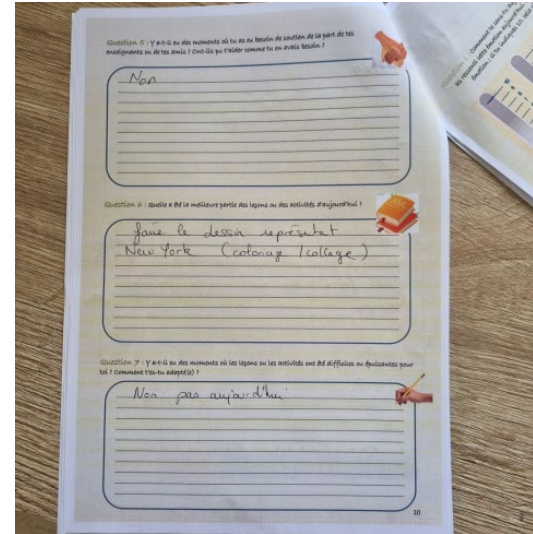 Question 5 : Y a-t-il eu des moments où tu as eu besoin de soutien de la part de tes
enseignants ou de tes amis ? Ont-ils pu t'aider comme tu en avais besoin ?
Non
Question 6 : Quelle a été la meilleure partie des leçons ou des activités d'aujourd'hui ?
faire le dessin représentat
New York (coloriage / collage)
Question 7 : Y a-t-il eu des moments où les leçons ou les activités ont été difficiles ou épuisantes pour
toi ? Comment t'es-tu adapté(e) ?
Non pas aujourd'hui
10